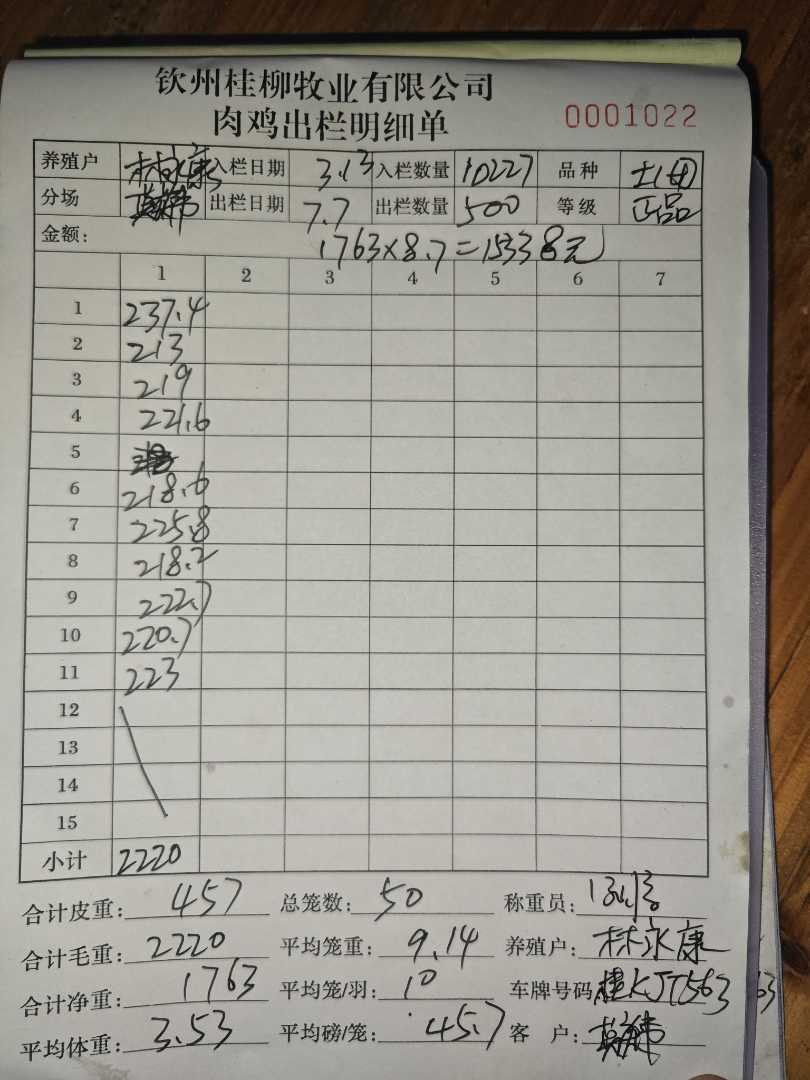 钦州桂柳牧业有限公司
肉鸡出栏明细单 0001022
养殖户 林永康 入栏日期 3.13 入栏数量 10227 品种 土1母
分场 出栏日期 7.7 出栏数量 500 等级 正品
金额: 1763×8.7=15338元
1 2 3 4 5 6 7
1 237.4
2 213
3 219
4 221.6
5
6 218.6
7 225.8
8 218.2
9 222.7
10 220.7
11 223
12
13
14
15
小计 2220
合计皮重: 457 总笼数: 50 称重员:
合计毛重: 2220 平均笼重: 9.14 养殖户: 林永康
合计净重: 1763 平均笼/羽: 10 车牌号码: 桂KJT563 63
平均体重: 3.53 平均磅/笼: 45.7 客 户: